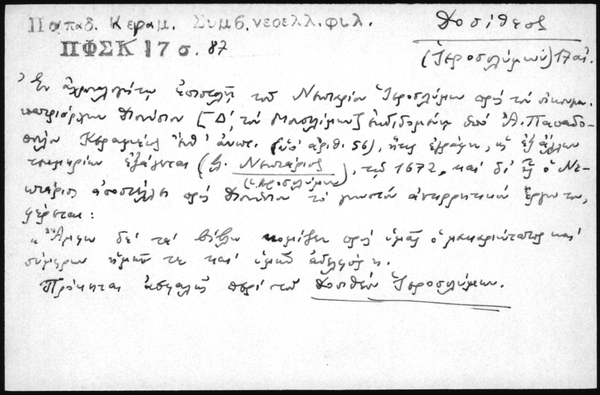 Παπαδ. Κεραμ. Συμβ. νεοελλ. φιλ.
ΠΦΣΚ 17 σ. 87
Δοσίθεος
(Ἱεροσολύμων) 17 αἰ.
Ἐν ἀχρονολογήτῳ ἐπιστολῇ τοῦ Νεκταρίου Ἱεροσολύμων πρὸς τὸν οἰκουμ.
πατριάρχην Διονύσιον [Δ΄, τὸν Μουσελίμην] ἐκδιδομένῃ ὑπὸ Ἀ. Παπαδο-
πούλου Κεραμέως ἔνθ' ἀνωτ. (ὑπ' ἀριθ. 56), ἥτις ἐγράφη, ὡς ἐξ ἄλλων
τεκμηρίων ἐξάγεται (βλ. Νεκτάριος
(Ἱεροσολύμων)), τῷ 1672, καὶ δι' ἧς ὁ Νε-
κτάριος ἀποστέλλει πρὸς Διονύσιον τὸ γνωστὸν ἀντιρρητικὸν ἔργον του,
φέρεται:
« Ἄμφω δὲ τὰ βιβλία κομίζει πρὸς ὑμᾶς ὁ μακαριώτατος καὶ
σύμφρων ἡμῶν τε καὶ ὑμῶν ἀδελφός ».
Πρόκειται ἀσφαλῶς περὶ τοῦ Δοσιθέου Ἱεροσολύμων.